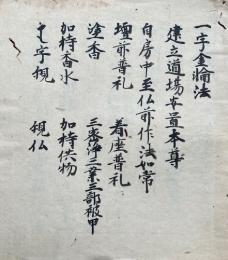 一字金輪法
建立道場安置本尊
自房中至仏前作法如常
壇前普礼 着座普礼
塗香 三密浄三業三部被甲
加持香水 加持供物
字観 観仏